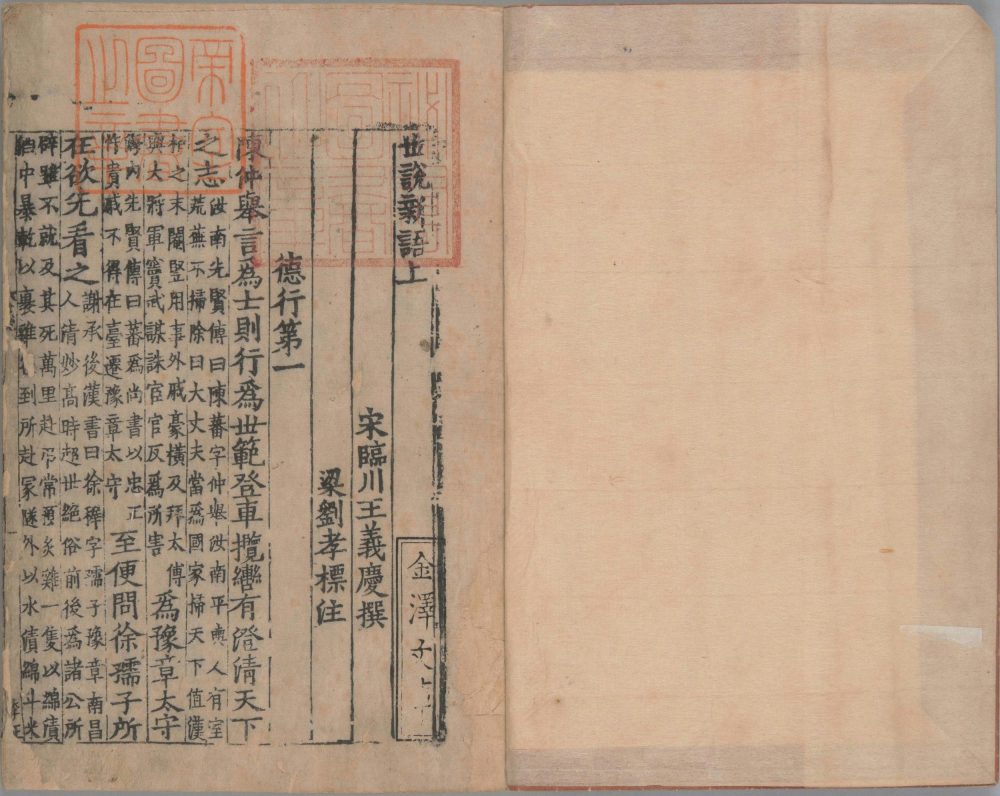 世說新語上
宋臨川王義慶撰
金澤文庫
梁劉孝標注
德行第一
陳仲舉言為士則行為世範登車攬轡有澄清天下
之志
汝南先賢傳曰陳蕃字仲舉汝南平輿人有室
荒蕪不掃除曰大丈夫當為國家掃天下值漢
桓之末閹豎用事外戚豪橫及拜太傅
與大將軍竇武謀誅宦官反為所害
為豫章太守
海內先賢傳曰蕃為尚書以忠正
忤貴戚不得在臺遷豫章太守
至便問徐孺子所
在欲先看之
謝承後漢書曰徐穉字孺子豫章南昌
人清妙高時超世絕俗前後為諸公所
辟雖不就及其死萬里赴弔常預炙雞一隻以綿漬
酒中暴乾以裹雞徑到所赴冢隧外以水漬綿斗米